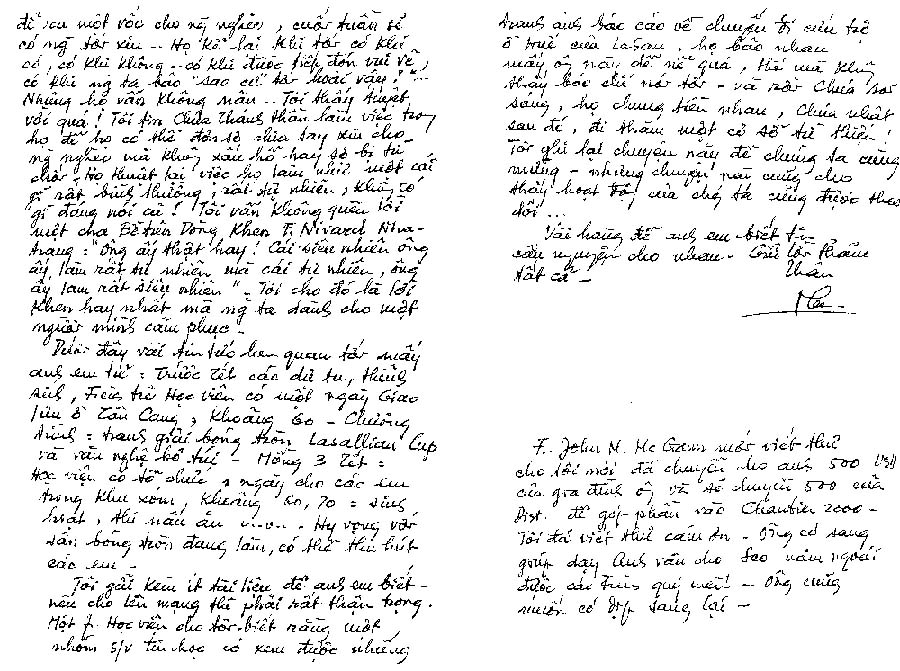 để sau một vốc cho ng nghèo, cuối tuần sẽ
có ng tới xin.. Họ kể lại khi tới có khi
có, có khi không.. có khi được tiếp đón vui vẻ,
có khi ng ta bảo "sao cứ tới hoài vậy!"...
Nhưng họ vẫn không nản.. Tôi thấy tuyệt
vời quá! Tôi tin Chúa Thánh thần làm việc trong
họ để họ có thể đơn sơ chìa tay xin cho
ng nghèo mà không xấu hổ hay sợ bị từ
chối. Họ thuật lại việc họ làm như một cái
gì rất bình thường, rất tự nhiên, không có
gì đáng nói cả! Tôi vẫn không quên lời
một cha Bề trên Dòng khen F. Nivard Nha-
trang: "Ông ấy thật hay! Cái siêu nhiên ông
ấy làm rất tự nhiên mà cái tự nhiên, ông
ấy làm rất siêu nhiên". Tôi cho đó là lời
khen hay nhất mà ng ta dành cho một
người mình cảm phục.
Dưới đây vài tin tức liên quan tới mấy
anh em trẻ: Trước Tết các dự tu, thỉnh
sinh, Tiền trú Học viện có một ngày Giao
lưu ở Tân Cang, khoảng 60 - Chương
trình: tranh giải bóng tròn Lasallian Cup
và văn nghệ bỏ túi - Mồng 3 Tết:
Học viện có tổ chức 1 ngày cho các em
trong khu xóm, khoảng 60, 70: sinh
hoạt, thi nấu ăn v..v... Hy vọng với
sân bóng tròn đang làm, có thể thu hút
các em -
Tôi gởi kèm ít tài liệu để anh em biết -
nếu cho lên mạng thì phải rất thận trọng.
Một F. Học viện cho tôi biết rằng một
nhóm s/v tin học có xem được những
tranh ảnh báo cáo về chuyện đi cứu trợ
ở Huế của LaSan, họ bảo nhau
mấy ông này dễ nể quá, thế mà không
thấy báo chí nói tới - và rồi Chúa soi
sáng, họ chung tiền nhau, Chúa nhật
sau đó, đi thăm một cơ sở từ thiện!
Tôi ghi lại chuyện này để chúng ta cùng
mừng - những chuyện mà cũng cho
thấy hoạt động của chúng ta cũng được theo
dõi...
Vài hàng để anh em biết tin
cầu nguyện cho nhau. Cho tôi thăm
tất cả - Thân
F. John N. Mc Gann mới viết thư
cho tôi nói đã chuyển cho anh 500 USD
của gia đình ông và sẽ chuyển 500 của
Dist. để góp phần vào Chantier 2000 -
Tôi đã viết thư cám ơn - Ông có sang
giúp dạy Anh văn cho Sco năm ngoái
được các Frères quý mến! - Ông cũng
muốn có dịp sang lại -